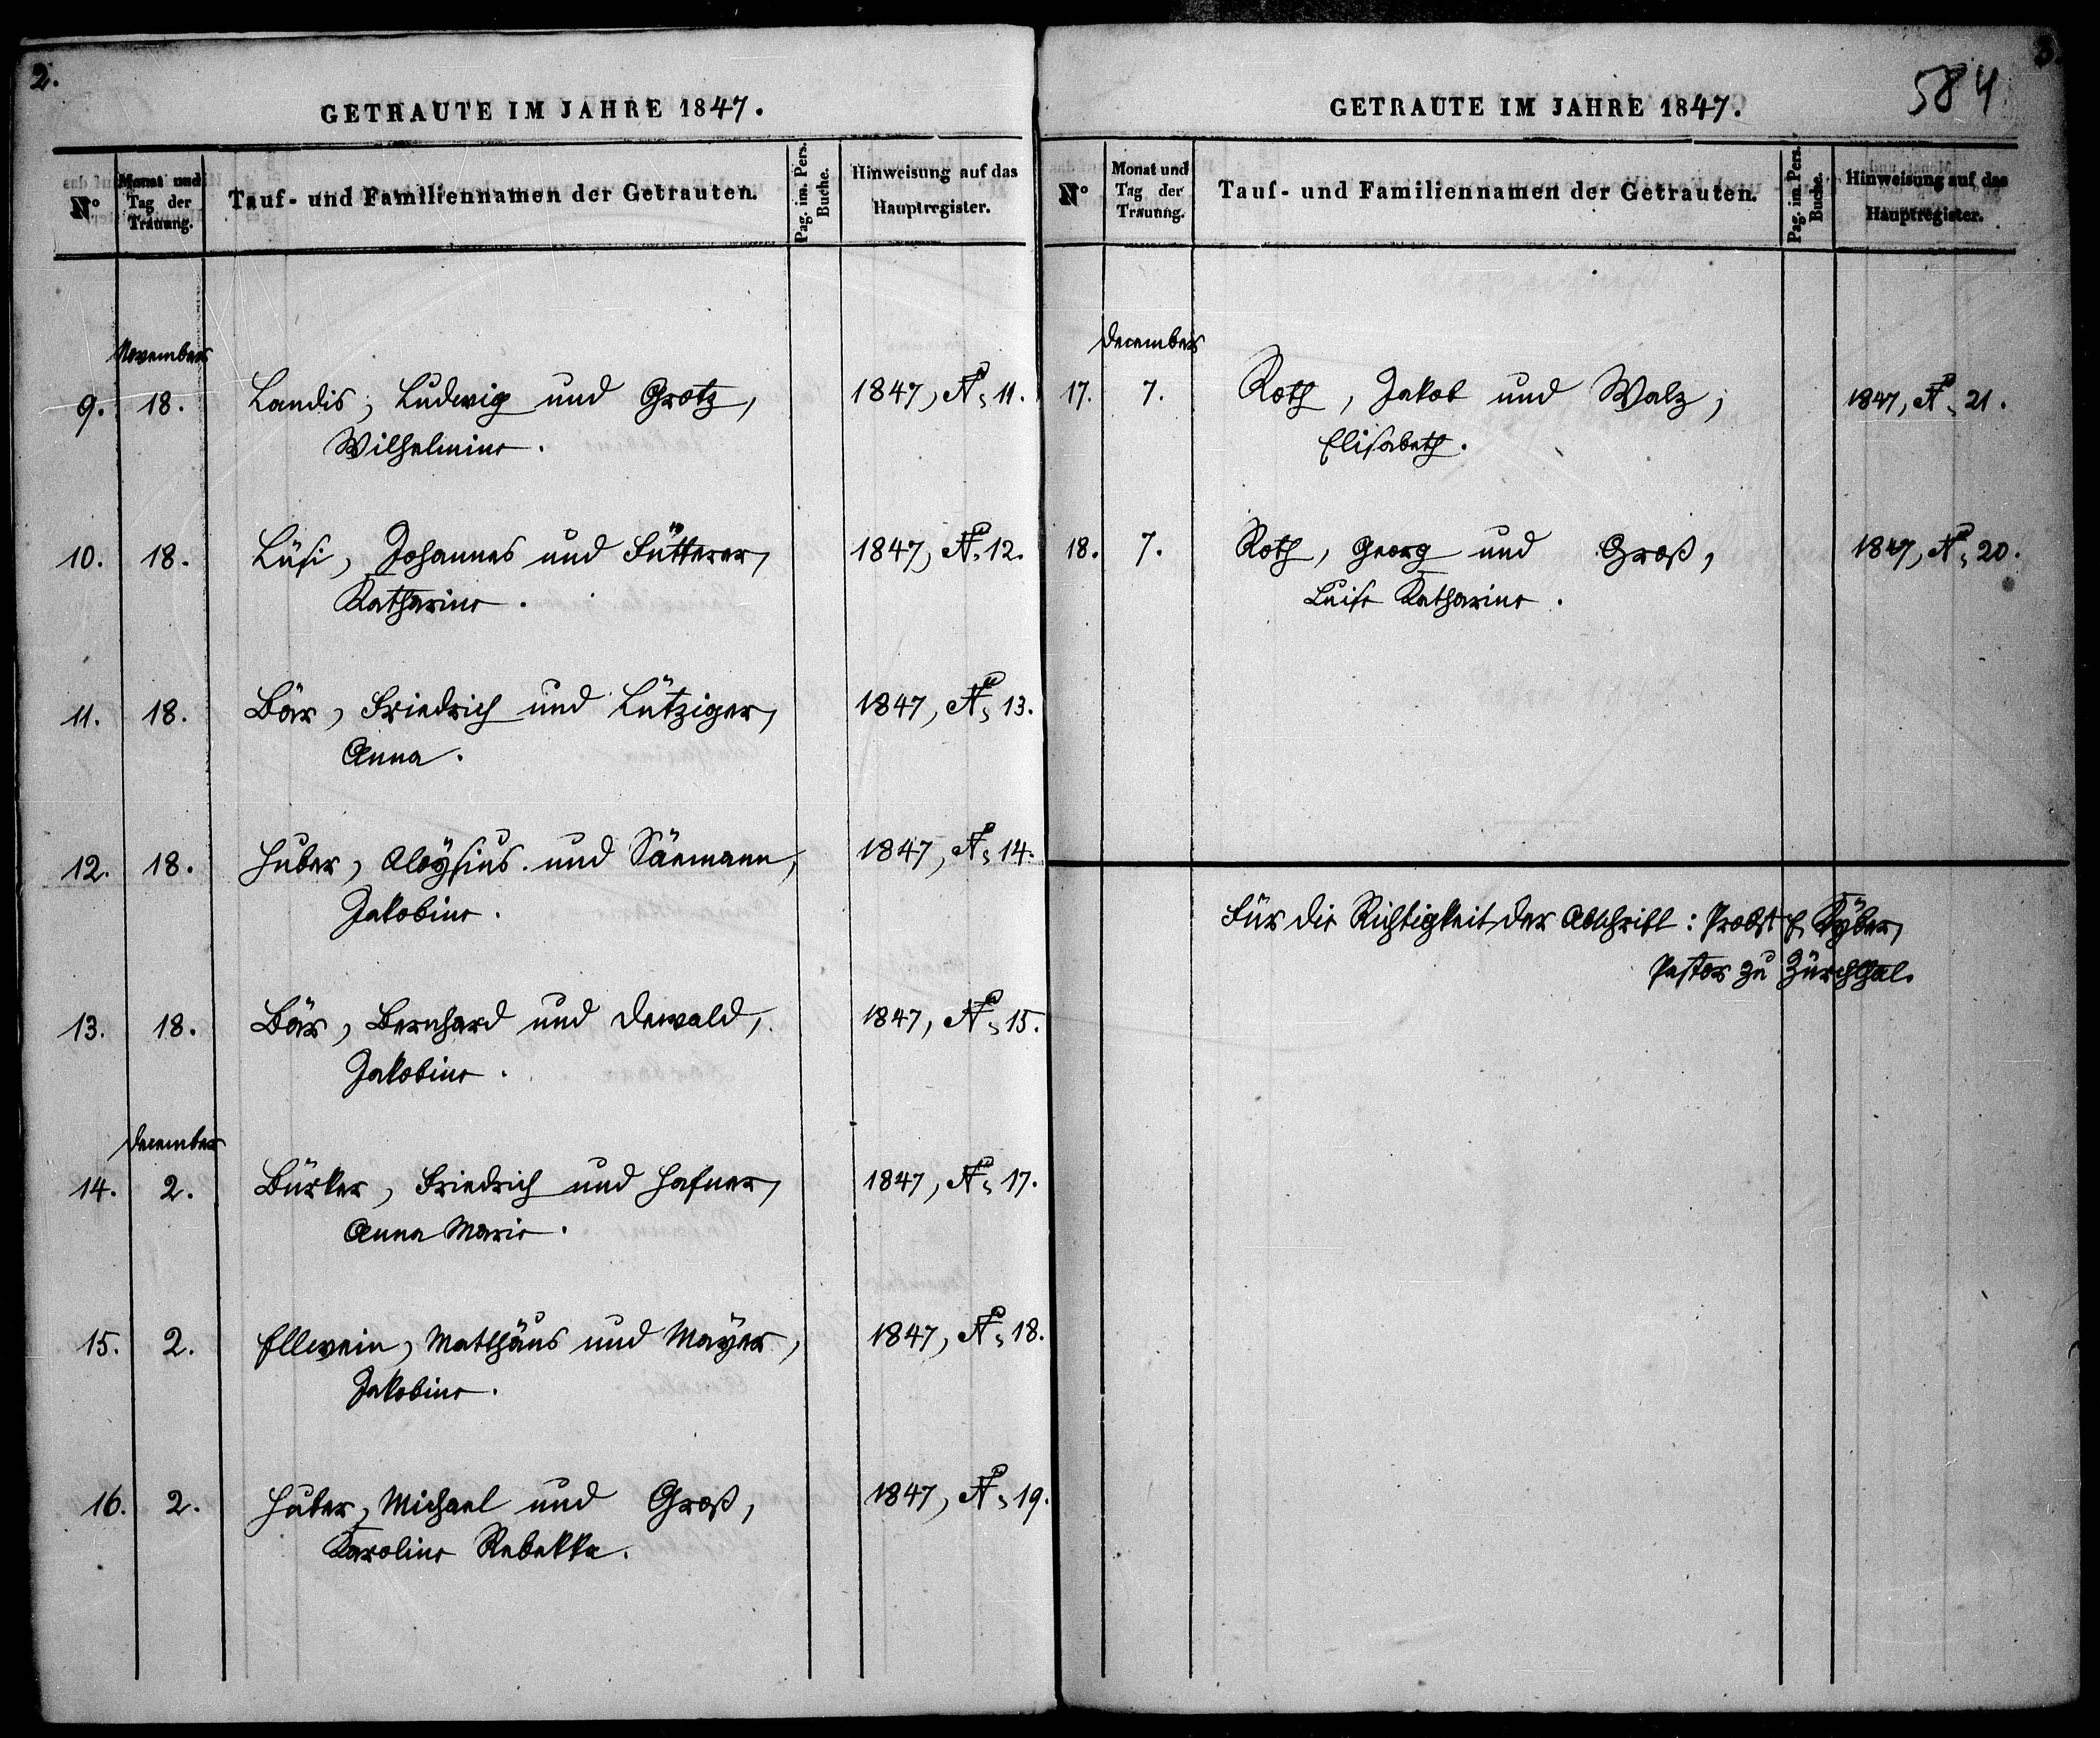 2.
GETRAUTE IM JAHRE 1847.
N° Monat und Tag der Trauung. Tauf- und Familiennamen der Getrauten. Pag. im. Pers. Buche. Hinweisung auf das Hauptregister.
November
9. 18. Landis, Ludwig und Grotz, 1847, N° 11.
Wilhelmine.
10. 18. Lüsi, Johannes und Fütterer, 1847, N° 12.
Katharine.
11. 18. Bär, Friedrich und Lütziger, 1847, N° 13.
Anna.
12. 18. Huber, Aloÿsius und Säemann, 1847, N° 14.
Jakobine.
13. 18. Bär, Bernhard und Dewald, 1847, N° 15.
Jakobine.
December
14. 2. Bürker, Friedrich und Hafner, 1847, N° 17.
Anna Marie.
15. 2. Ellwein, Matthäus und Mayer, 1847, N° 18.
Jakobine.
16. 2. Huber, Michael und Groß, 1847, N° 19.
Karoline Rebekka.
3.
584
GETRAUTE IM JAHRE 1847.
N° Monat und Tag der Trauung. Tauf- und Familiennamen der Getrauten. Pag. im. Pers. Buche. Hinweisung auf das Hauptregister.
December
17. 7. Roth, Jakob und Walz, 1847, N° 21.
Elisabeth.
18. 7. Roth, Georg und Groß, 1847, N° 20.
Luise Katharine.
Für die Richtigkeit der Abschrift: Probst Kÿber,
Pastor zu Zürichthal.